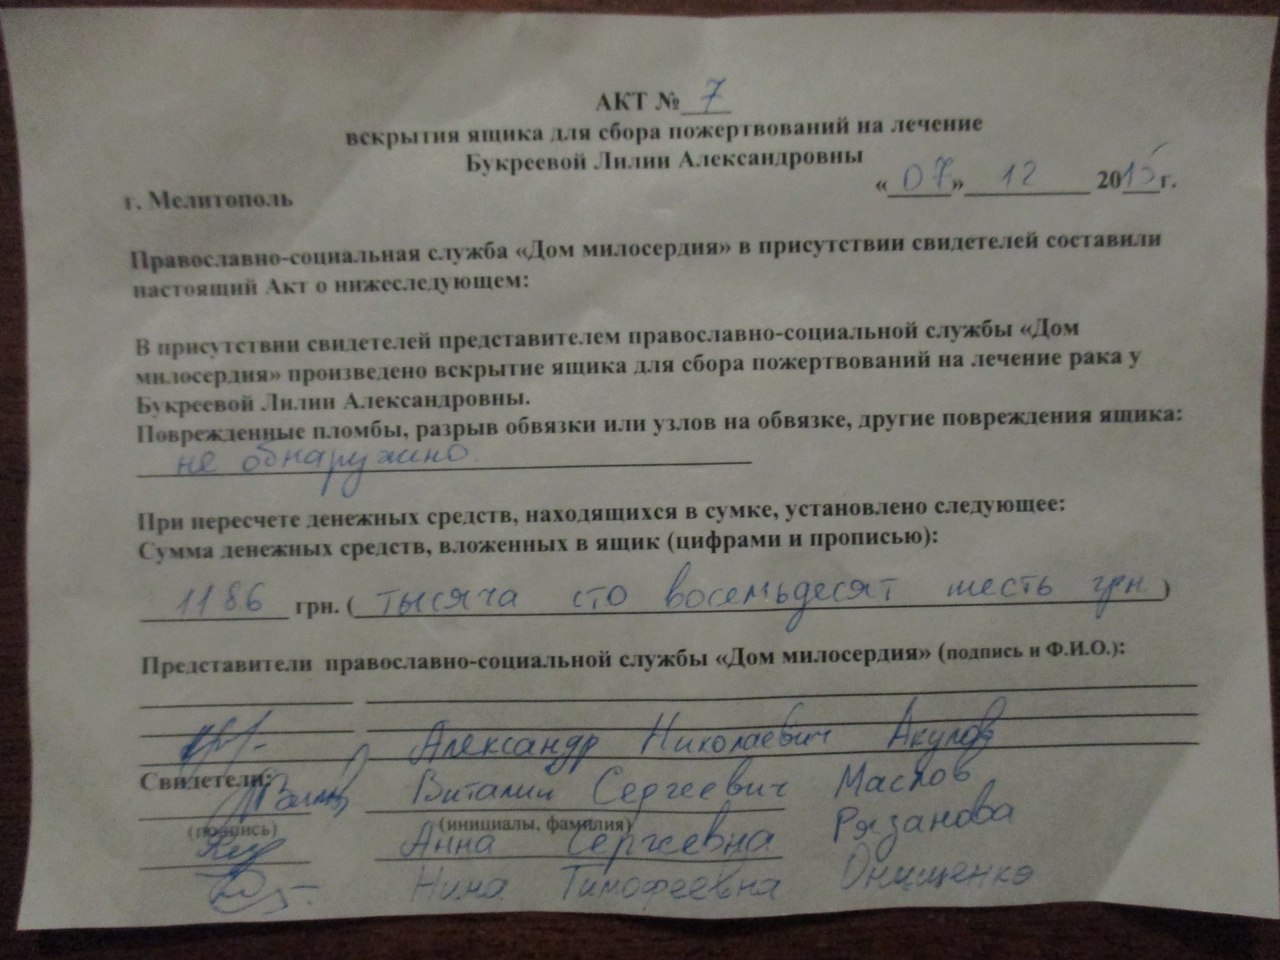 АКТ № 7
вскрытия ящика для сбора пожертвований на лечение
Букреевой Лилии Александровны
«07» 12 2015г.
г. Мелитополь
Православно-социальная служба «Дом милосердия» в присутствии свидетелей составили
настоящий Акт о нижеследующем:
В присутствии свидетелей представителем православно-социальной службы «Дом
милосердия» произведено вскрытие ящика для сбора пожертвований на лечение рака у
Букреевой Лилии Александровны.
Поврежденные пломбы, разрыв обвязки или узлов на обвязке, другие повреждения ящика:
не обнаружино.
При пересчете денежных средств, находящихся в сумке, установлено следующее:
Сумма денежных средств, вложенных в ящик (цифрами и прописью):
1186 грн. (тысяча сто восемьдесят шесть грн)
Представители православно-социальной службы «Дом милосердия» (подпись и Ф.И.О.):
Александр Николаевич Акулов
Свидетели:
Виталий Сергеевич Маслов
(подпись) (инициалы, фамилия)
Анна Сергеевна Рязанова
Нина Тимофеевна Онищенко